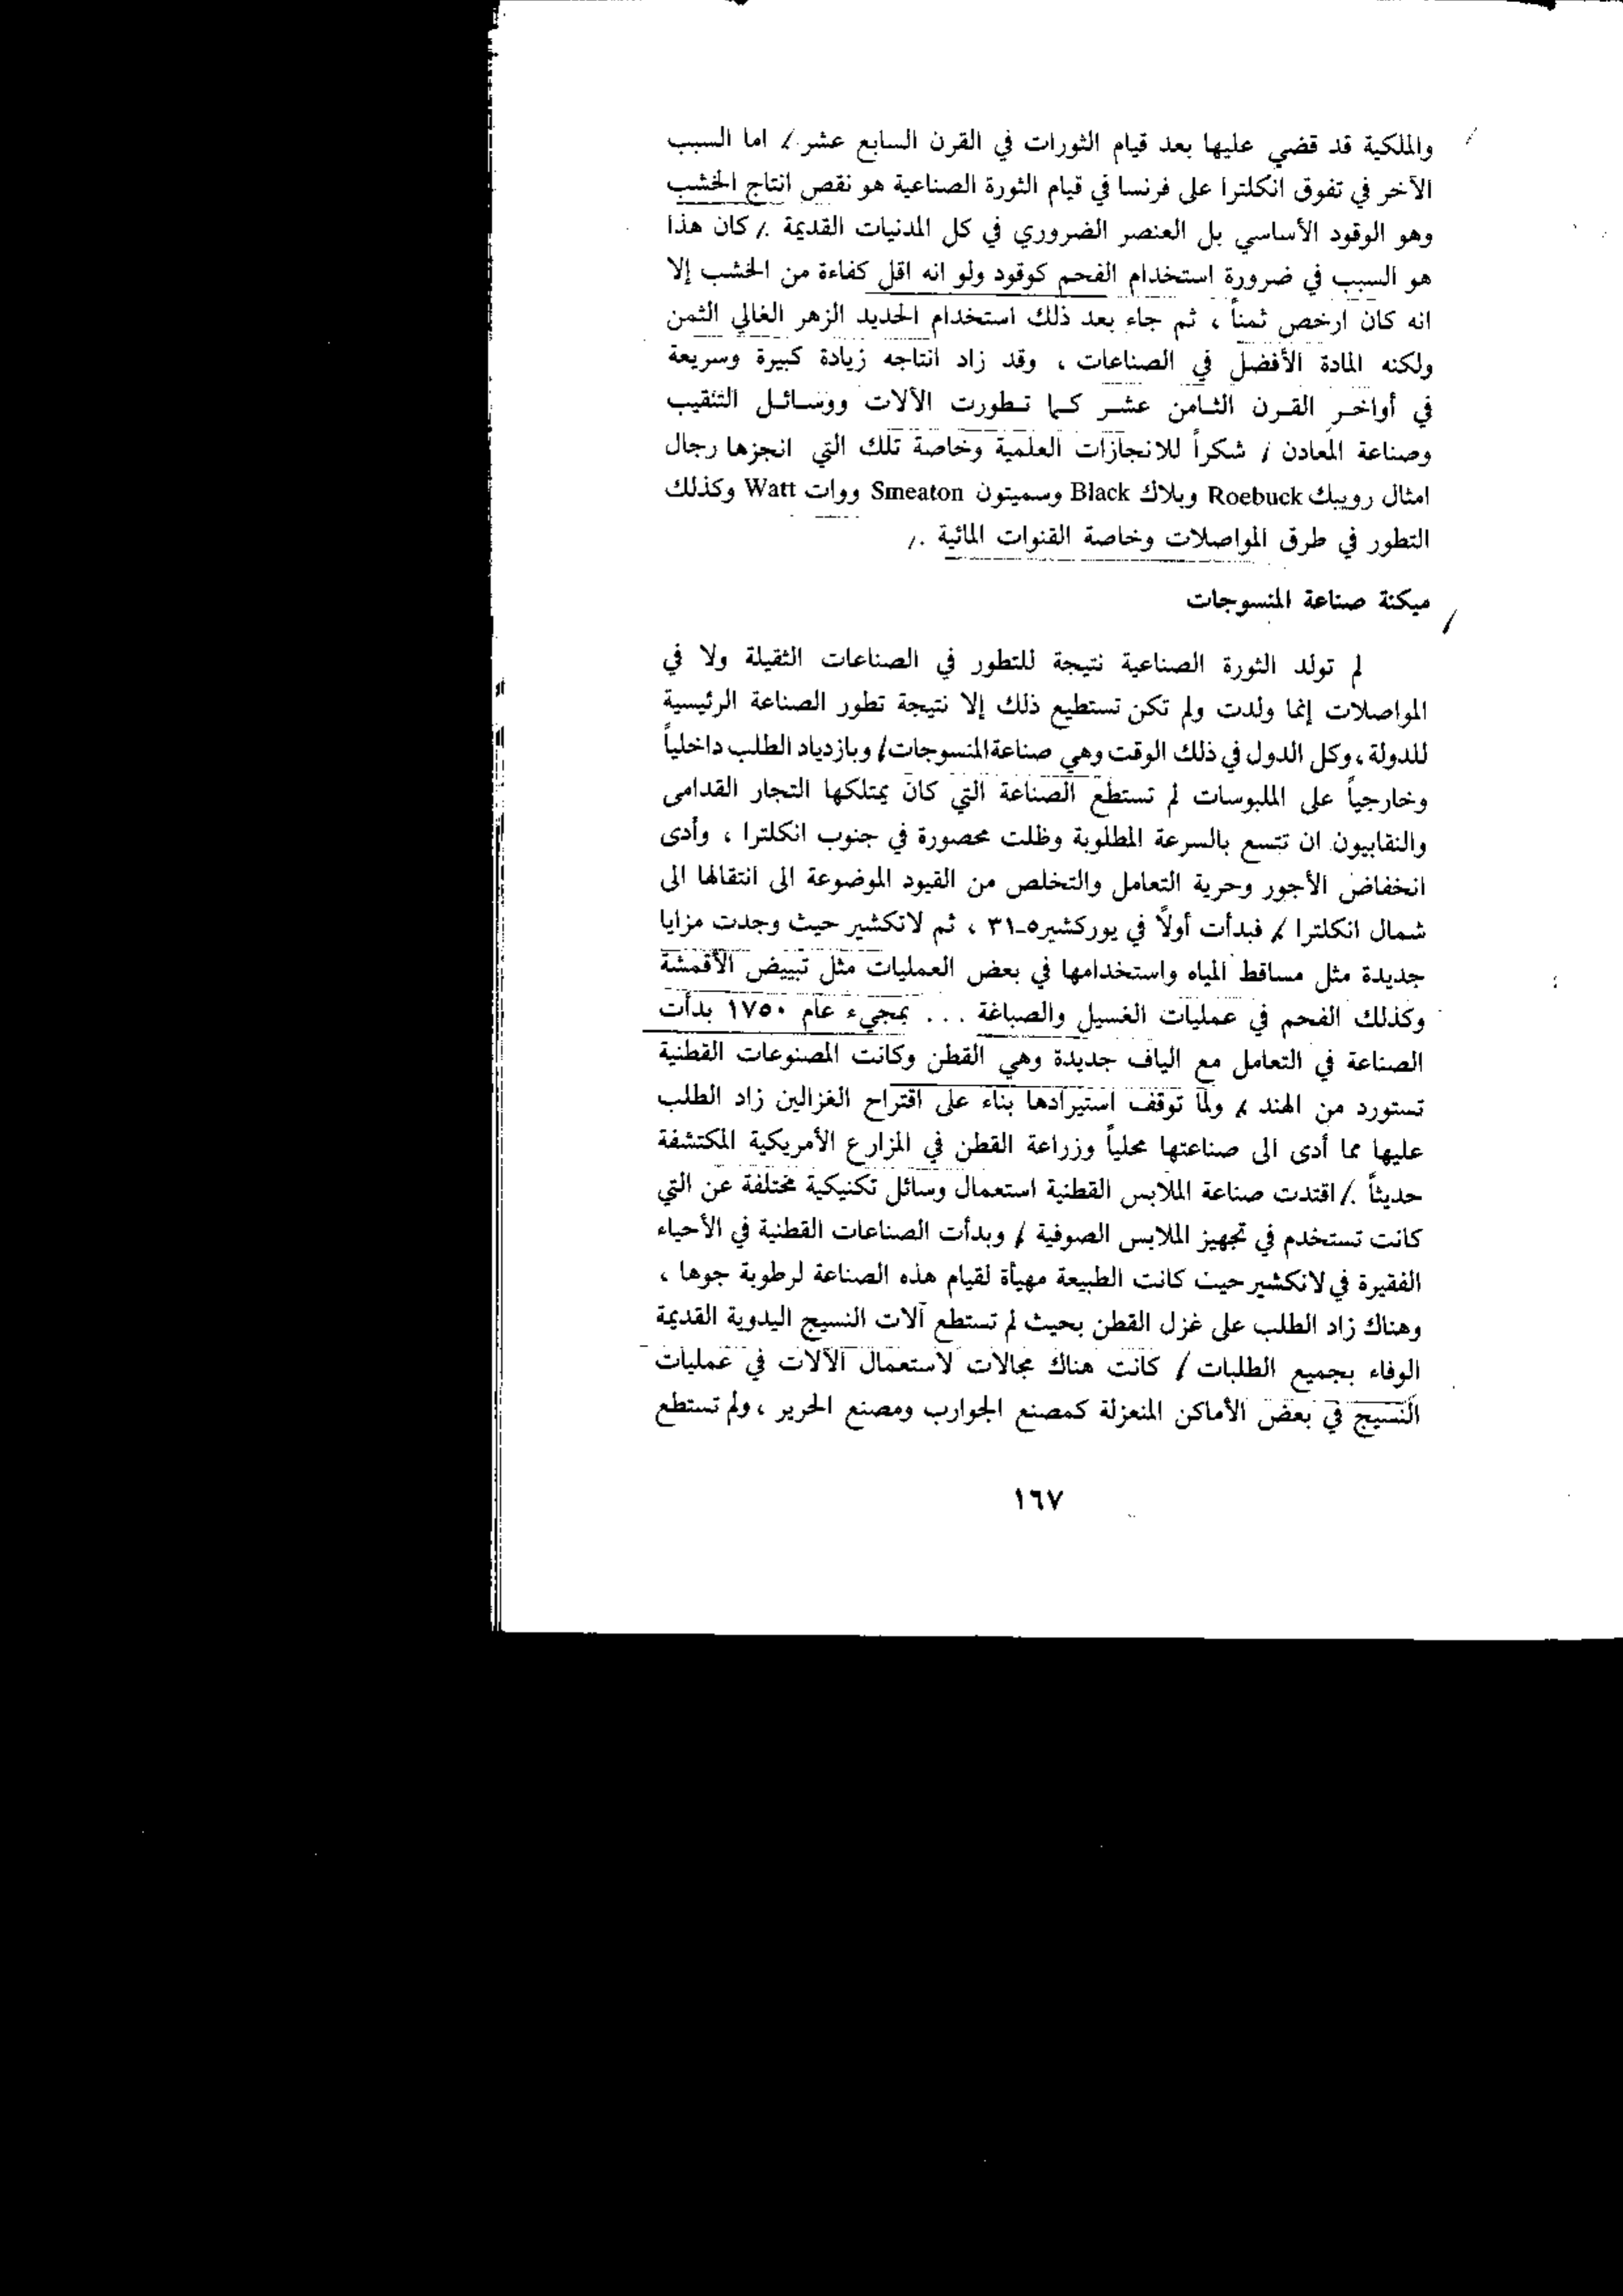 والملكية قد قضي عليها بعد قيام الثورات في القرن السابع عشر . اما السبب
الآخر في تفوق انكلترا على فرنسا في قيام الثورة الصناعية هو نقص انتاج الخشب
وهو الوقود الأساسي بل العنصر الضروري في كل المدنيات القديمة . كان هذا
هو السبب في ضرورة استخدام الفحم كوقود ولو انه اقل كفاءة من الخشب إلا
انه كان ارخص ثمناً ، ثم جاء بعد ذلك استخدام الحديد الزهر الغالي الثمن
ولكنه المادة الأفضل في الصناعات ، وقد زاد انتاجه زيادة كبيرة وسريعة
في أواخر القرن الثامن عشر كما تطورت الآلات ووسائل التنقيب
وصناعة المعادن / شكراً للانجازات العلمية وخاصة تلك التي انجزها رجال
امثال روبيك Roebuck وبلاك Black وسميتون Smeaton ووات Watt وكذلك
التطور في طرق المواصلات وخاصة القنوات المائية .
ميكنة صناعة المنسوجات
لم تولد الثورة الصناعية نتيجة للتطور في الصناعات الثقيلة ولا في
المواصلات إنما ولدت ولم تكن تستطيع ذلك إلا نتيجة تطور الصناعة الرئيسية
للدولة ، وكل الدول في ذلك الوقت وهي صناعة المنسوجات / وبازدياد الطلب داخلياً
وخارجياً على الملبوسات لم تستطع الصناعة التي كان يمتلكها التجار القدامى
والنقابيون ان تتسع بالسرعة المطلوبة وظلت محصورة في جنوب انكلترا ، وأدى
انخفاض الأجور وحرية التعامل والتخلص من القيود الموضوعة الى انتقالها الى
شمال انكلترا / فبدأت أولاً في يوركشير٥-٣١ ، ثم لانكشير حيث وجدت مزايا
جديدة مثل مساقط المياه واستخدامها في بعض العمليات مثل تبييض الأقمشة
وكذلك الفحم في عمليات الغسيل والصباغة ... بمجيء عام ١٧٥٠ بدأت
الصناعة في التعامل مع الياف جديدة وهي القطن وكانت المصنوعات القطنية
تستورد من الهند ، ولما توقف استيرادها بناء على اقتراح الغزالين زاد الطلب
عليها مما أدى الى صناعتها محلياً وزراعة القطن في المزارع الأمريكية المكتشفة
حديثاً . / اقتدت صناعة الملابس القطنية استعمال وسائل تكنيكية مختلفة عن التي
كانت تستخدم في تجهيز الملابس الصوفية / وبدأت الصناعات القطنية في الأحياء
الفقيرة في لانكشير حيث كانت الطبيعة مهيأة لقيام هذه الصناعة لرطوبة جوها ،
وهناك زاد الطلب على غزل القطن بحيث لم تستطع آلات النسيج اليدوية القديمة
الوفاء بجميع الطلبات / كانت هناك مجالات لاستعمال الآلات في عمليات
النسيج في بعض الأماكن المنعزلة كمصنع الجوارب ومصنع الحرير ، ولم تستطع
١٦٧